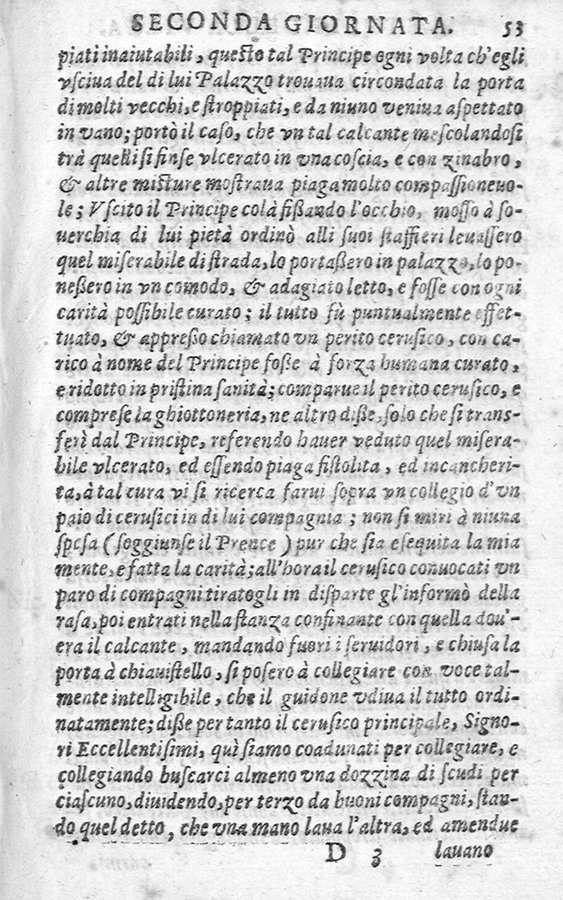 SECONDA GIORNATA. 53
piati inaiutabili, questo tal Principe ogni volta ch'egli
vsciua del di lui Palazzo trouaua circondata la porta
di molti vecchi, e stroppiati, e da niuno veniua aspettato
in vano; portò il caso, che vn tal calcante mescolandosi
trà quelli si finse vlcerato in vna coscia, e con zinabro,
& altre misture mostraua piaga molto compassioneuo-
le; Vscito il Principe colà fißando l'occhio, mosso à so-
uerchia di lui pietà ordinò alli suoi staffieri leuassero
quel miserabile di strada, lo portaßero in palazzo, lo po-
neßero in vn comodo, & adagiato letto, e fosse con ogni
carità possibile curato; il tutto fù puntualmente effet-
tuato, & appreßo chiamato vn perito cerusico, con ca-
rico à nome del Principe foße à forza humana curato,
e ridotto in pristina sanità; comparue il perito cerusico, e
comprese la ghiottoneria, ne altro diße, solo che si trans-
ferì dal Principe, referendo hauer veduto quel misera-
bile vlcerato, ed essendo piaga fistolita, ed incancheri-
ta, à tal cura vi si ricerca farui sopra vn collegio d'vn
paio di cerusici in di lui compagnia; non si miri à niuna
spesa (soggiunse il Prence) pur che sia esequita la mia
mente, e fatta la carità; all'hora il cerusico conuocati vn
paro di compagni tiratogli in disparte gl'informò della
rasa, poi entrati nella stanza confinante con quella dou'-
era il calcante, mandando fuori i seruidori, e chiusa la
porta à chiauistello, si posero à collegiare con voce tal-
mente intelligibile, che il guidone vdiua il tutto ordi-
natamente; diße per tanto il cerusico principale, Signo-
ri Eccellentisimi, quì siamo coadunati per collegiare, e
collegiando buscarci almeno vna dozzina di scudi per
ciascuno, diuidendo, per terzo da buoni compagni, stan-
do quel detto, che vna mano laua l'altra, ed amendue
D 3 lauano